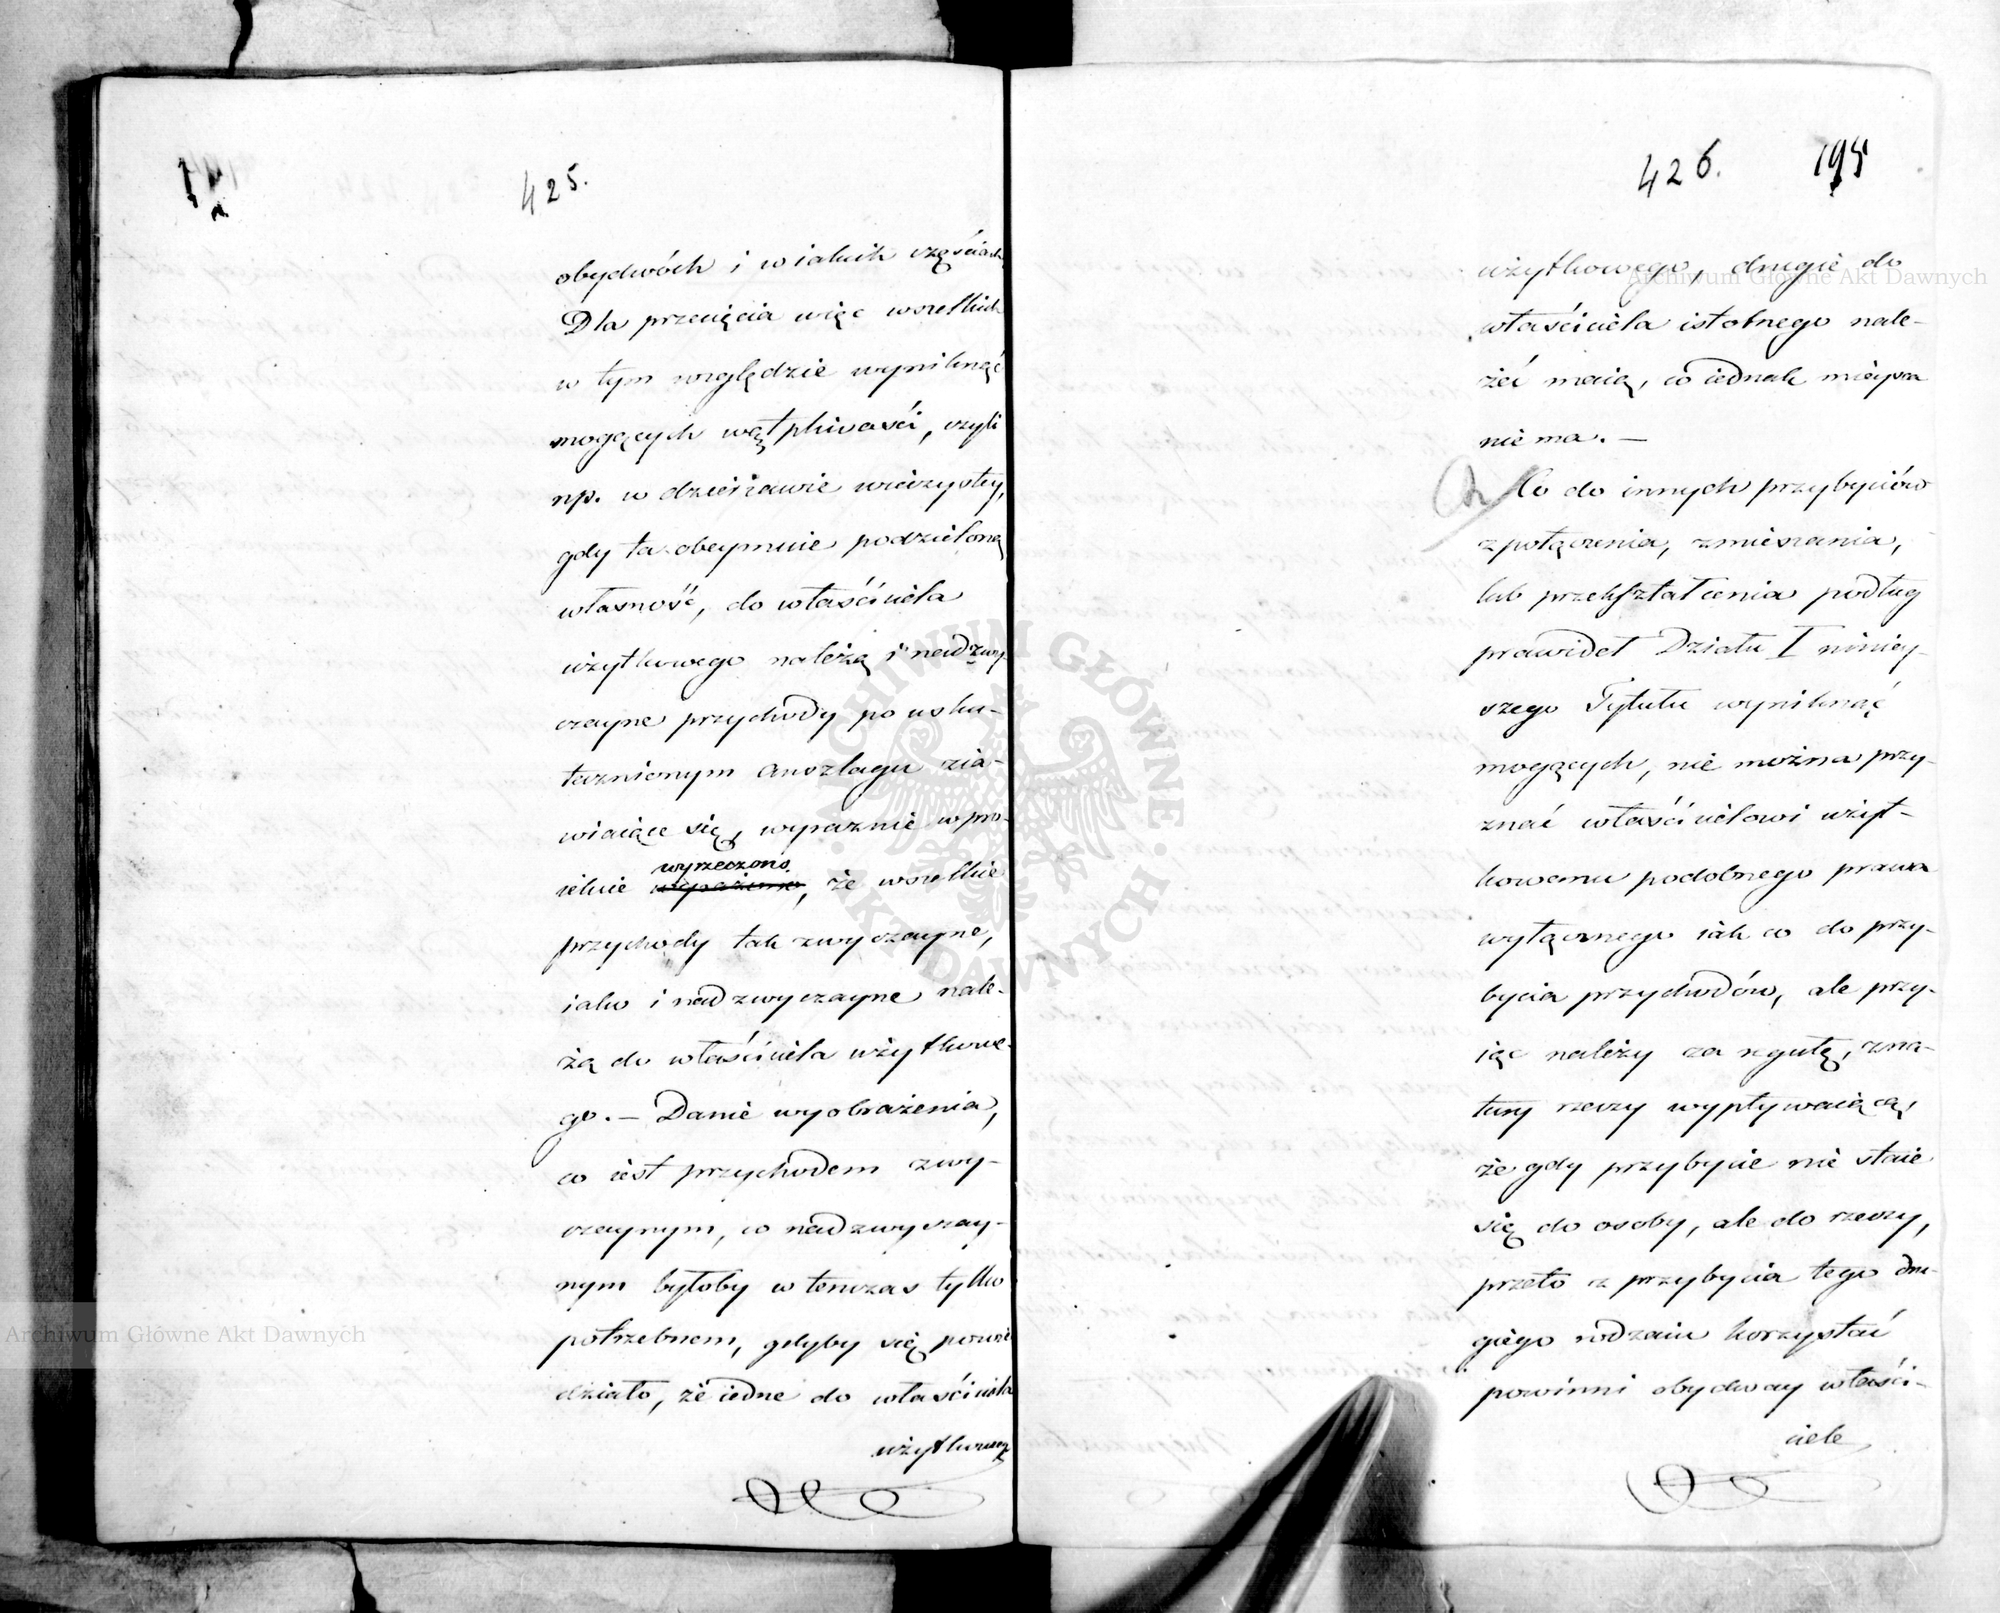 425.
obydwóch i w iakich częściach
Dla przecięcia więc wszelkich
w tym względzie wyniknąć
mogących wątpliwości, czyli
np. w dzierżawie wieczystey,
gdy ta obeymuie podzieloną
własność, do właściciela
użytkowego należą i nadzwy-
czayne przychody po usku-
tecznionym anszlagu zia-
wiaiące się, wyraznie w pro-
iekcie wyrażono, że wszelkie
wyrzeczono.
przychody tak zwyczayne,
iako i nadzwyczayne nale-
żą do właściciela użytkowe-
go. — Danie wyobrażenia,
co iest przychodem zwy-
czaynym, co nadzwyczay-
nym byłoby w tenczas tylko
potrzebnem, gdyby się powie
działo, że iedne do właściciela
użytkoweg
426. 195
użytkowego, drugie do
właściciela istotnego nale-
żeć maią, co iednak mieysca
nie ma. —
Co do innych przybyciów
z połączenia, zmieszania,
lub przekształcenia podług
prawideł Działu I niniey-
szego Tytułu wyniknąć
mogących, nie można przy-
znać właścicielowi użyt-
kowemu podobnego prawa
wyłącznego iak co do przy-
bycia przychodów, ale przy-
iąć należy za regułę, z na-
tury rzeczy wypływaiącą,
że gdy przybycie nie staie
się do osoby, ale do rzeczy,
przeto z przybycia tego dru-
giego rodzaiu korzystać
powinni obydway właści-
ciele
ARCHIWUM GŁÓWNE AKT DAWNYCH
Archiwum Główne Akt Dawnych
Archiwum Główne Akt Dawnych